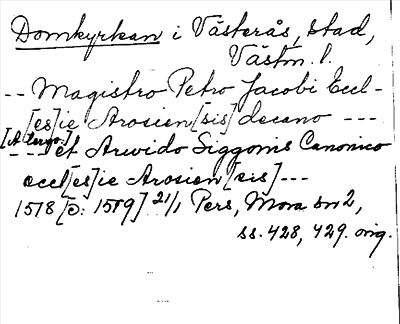 Domkyrkan i Västerås, stad,
Västm. l.
-- Magistro Petro Jacobi Eccl-
[es]ie Arosien[sis] decano ---
[A tergo:]
--- et Arvido Siggonis Canonico
eccl[es]ie Arosien[sis] ---
1518 [o: 1519] 21/1 Pers, Mora sn 2,
ss. 428, 429. orig.